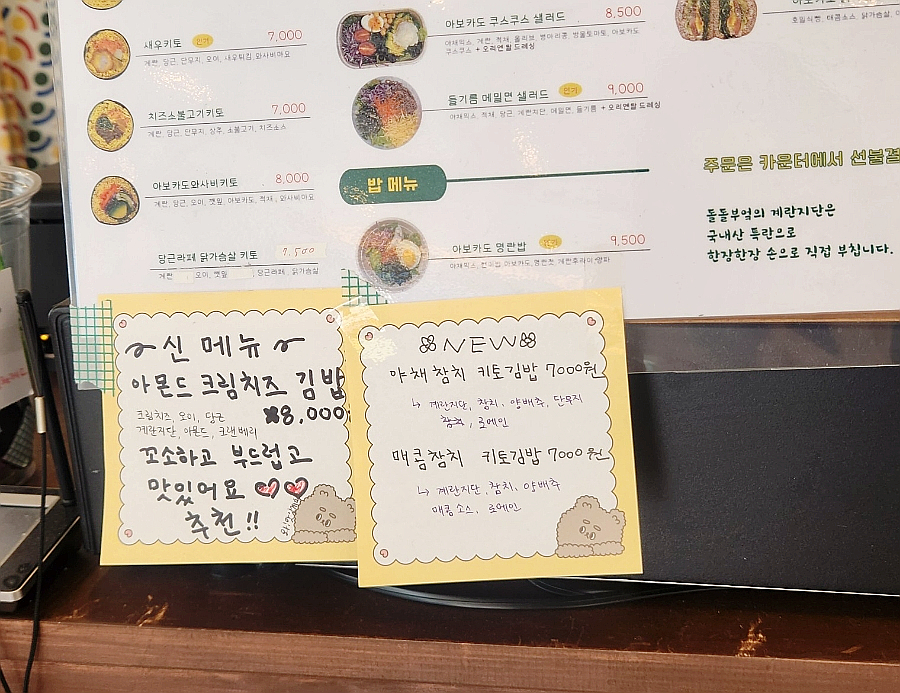 새우키토 인기 7,000
계란, 당근, 단무지, 오이, 새우튀김, 와사비마요
치즈소불고기키토 7,000
계란, 당근, 단무지, 상추, 소불고기, 치즈소스
아보카도와사비키토 8,000
계란, 당근, 오이, 깻잎, 아보카도, 적채, 와사비마요
당근라페 닭가슴살 키토 7,500
계란 오이, 깻잎 당근라페 닭가슴살
아보카도 쿠스쿠스 샐러드 8,500
야채믹스, 계란, 적채, 올리브, 병아리콩, 방울토마토, 아보카도
쿠스쿠스 + 오리엔탈 드레싱
들기름 메밀면 샐러드 인기 9,000
야채믹스, 적채, 당근, 계란지단, 메밀면, 들기름 + 오리엔탈 드레싱
밥 메뉴
아보카도 명란밥 인기 9,500
야채믹스, 아보카도, 명란젓, 계란후라이, 양파
주문은 카운터에서 선불결
돌돌부엌의 계란지단은
국내산 특란으로
한장한장 손으로 직접 부칩니다.
신 메뉴
아몬드 크림치즈 김밥
8,000
크림치즈, 오이, 당근
계란지단, 아몬드, 크랜베리
꼬소하고 부드럽고
맛있어요 ♡♡
추천!!
NEW
야채참치 키토김밥 7000원
↳ 계란지단, 참치, 양배추, 단무지
로메인
매콤참치 키토김밥 7000원
↳ 계란지단, 참치, 양배추
매콤소스, 로메인